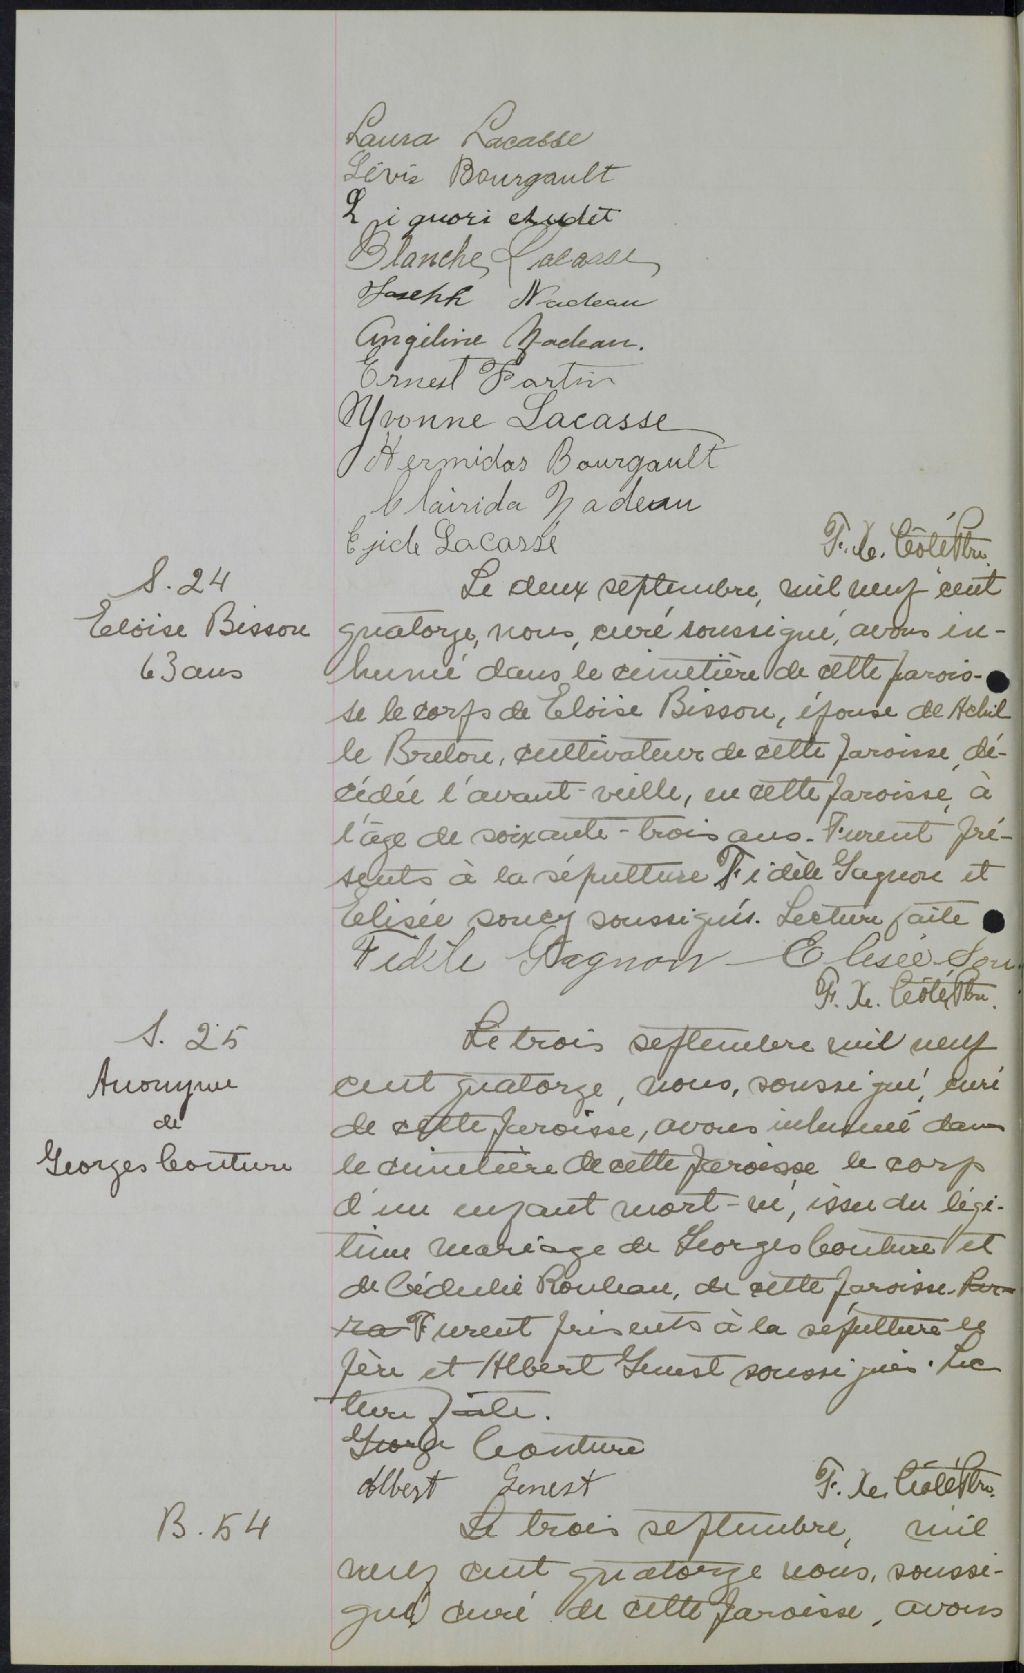 Laura Lacasse
Lévis Bourgault
Liguori Audet
Blanche Lacasse
Joseph Nadeau
Angéline Nadeau.
Ernest Fortin
Yvonne Lacasse
Hermidas Bourgault
Clairida Nadeau
Egide Lacasse
F. X. Côté Ptre.
S. 24
Eloïse Bisson
63 ans
Le deux septembre, mil neuf cent
quatorze, nous, curé soussigné, avons in-
humé dans le cimetière de cette parois-
se le corps de Eloïse Bisson, épouse de Achil
le Breton, cultivateur de cette paroisse, dé-
cédée l'avant-veille, en cette paroisse, à
l'âge de soixante-trois ans. Furent pré-
sents à la sépulture Fidèle Gagnon et
Elisée Soucy soussignés. Lecture faite
Fidèle Gagnon Elisée Sou
F. X. Côté Ptre.
S. 25
Anonyme
de
Georges Couture
Le trois septembre mil neuf
cent quatorze, nous, soussigné, curé
de cette paroisse, avons inhumé dans
le cimetière de cette paroisse le corp
d'un enfant mort-né, issu du légi-
time mariage de Georges Couture et
de Cédulie Rouleau, de cette paroisse.
Furent présents à la sépulture le
père et Albert Genest soussignés. Lec
ture faite.
George Couture
Albert Genest
F. X. Côté Ptre.
B. 54
Le trois septembre, mil
neuf cent quatorze nous, soussi-
gné, curé de cette paroisse, avons